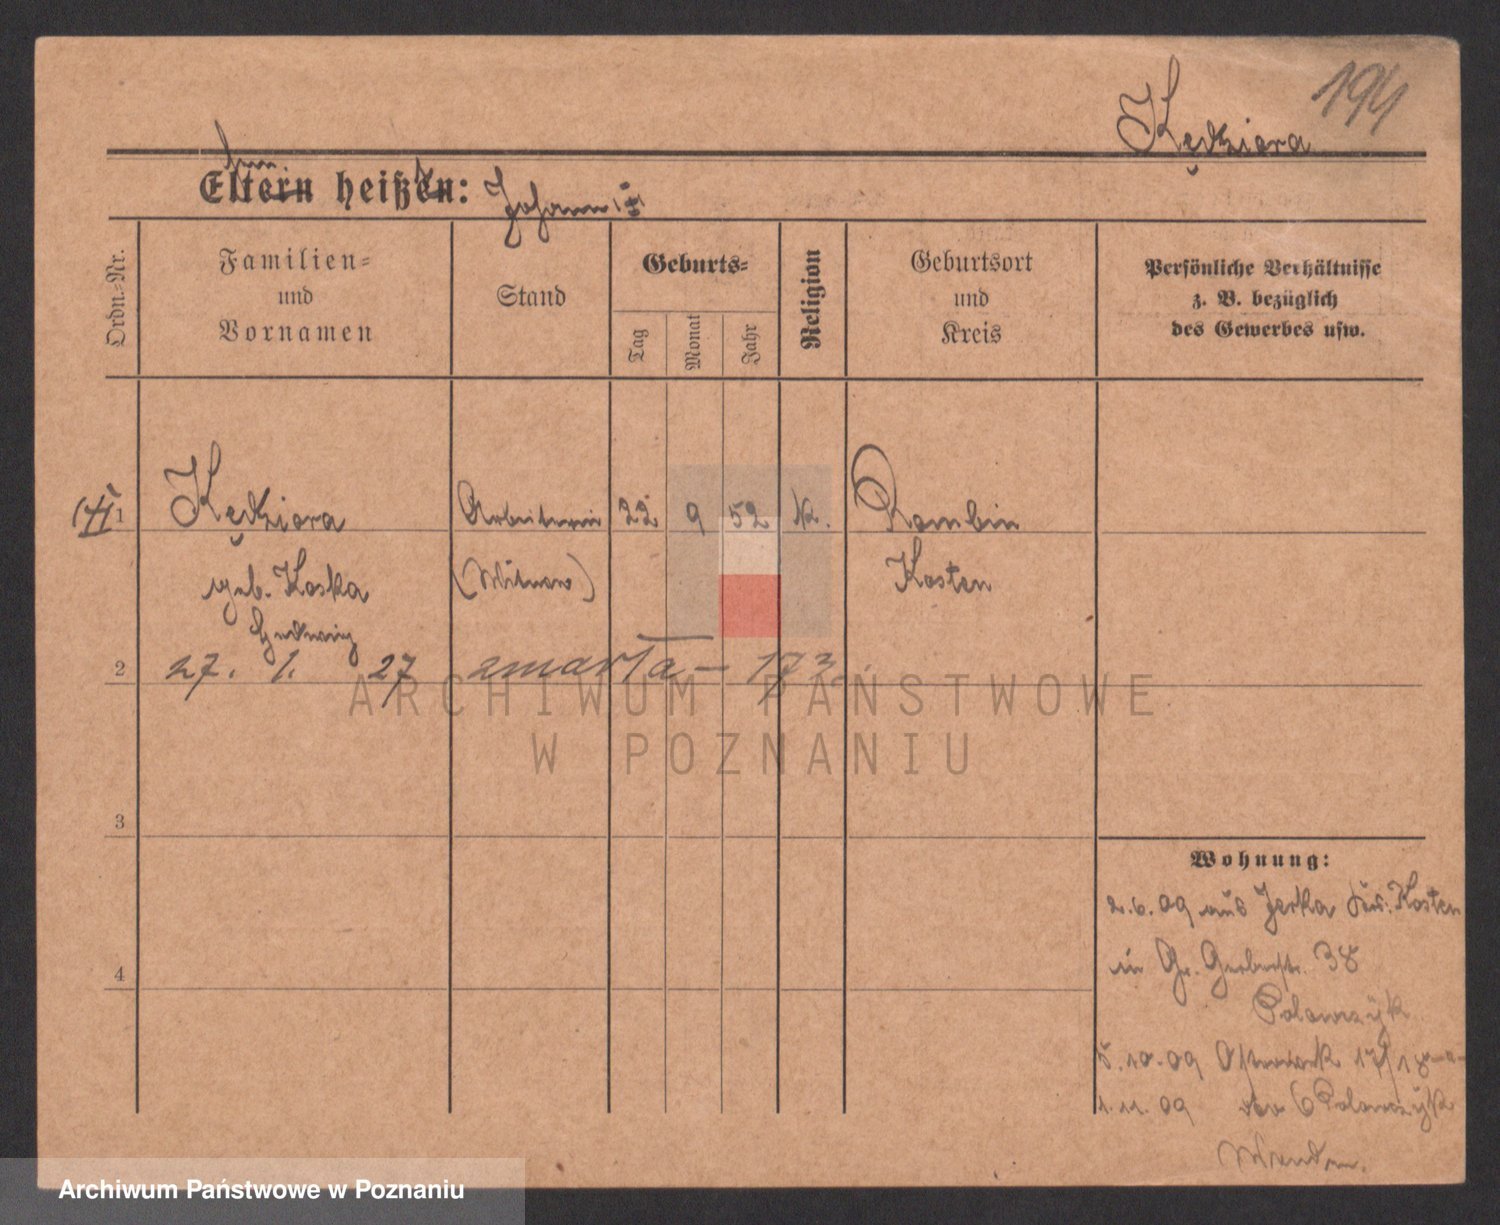 194
Kędziora
Eltern heißen: Johann
Ordn.-Nr.
Familien-
und
Vornamen
Stand
Geburts-
Tag
Monat
Jahr
Religion
Geburtsort
und
Kreis
Persönliche Verhältnisse
z. B. bezüglich
des Gewerbes usw.
1 Kędziora Arbeiterin 22 9 52 k. Rombin
geb. Koska (Witwe) Kosten
Hedwig
2 27. 1. 27 zmarła — 173.
ARCHIWUM PAŃSTWOWE
W POZNANIU
3
4
Wohnung:
2.6.09 aus Jerka Krs. Kosten
in Gr. Gerberstr. 38
Polowczyk
5.10.09 Ostrowek 17/18
1.11.09 6 Polowczyk
Archiwum Państwowe w Poznaniu